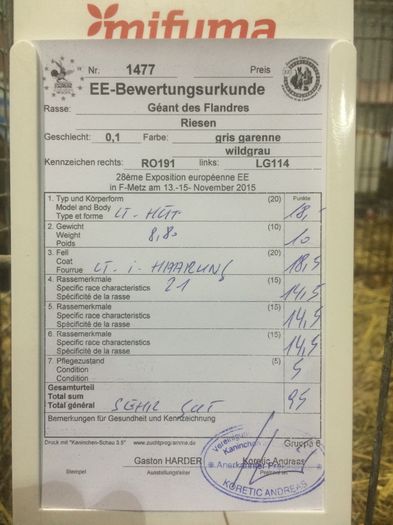 mifuma
Nr. 1477 Preis
EE-Bewertungsurkunde
Rasse: Géant des Flandres
Riesen
Geschlecht: 0,1 Farbe: gris garenne
wildgrau
Kennzeichen rechts: RO191 links: LG114
28ème Exposition européenne EE
in F-Metz am 13.-15- November 2015
1. Typ und Körperform (20) Punkte
Model and Body
Type et forme LT-HÜT 18,-
2. Gewicht (10)
Weight 8,80
Poids 10
3. Fell (20)
Coat
Fourrue LT. i. HAARUNG 18,5
4. Rassemerkmale (15)
Specific race characteristics 21
Spécificité de la rasse 14,5
5. Rassemerkmale (15)
Specific race characteristics
Spécificité de la rasse 14,5
6. Rassemerkmale (15)
Specific race characteristics
Spécificité de la rasse 14,5
7. Pflegezustand (5)
Condition
Condition 5
Gesamturteil
Total sum
Total général SEHR GUT 95
Bemerkungen für Gesundheit und Kennzeichnung
Druck mit "Kaninchen-Schau 3.5" www.zuchtprogramme.de Gruppe 6
Gaston HARDER Koretic Andreas
Stempel Ausstellungsleiter
Kaninchen
Anerkannter Preisrichter
KORETIC ANDREAS